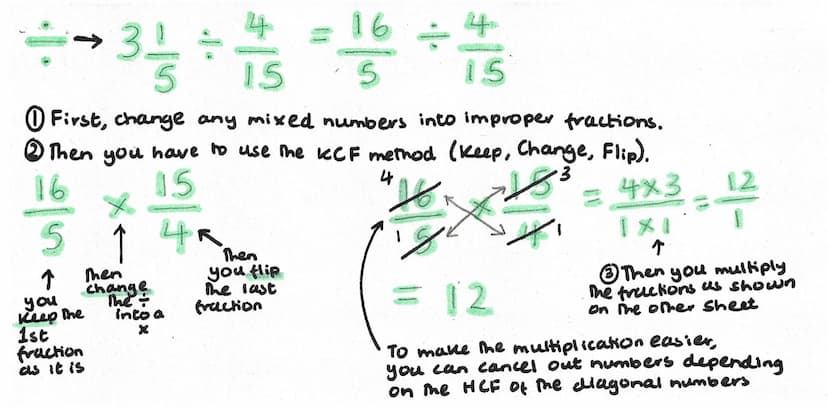 ÷ → 3 1/5 ÷ 4/15 = 16/5 ÷ 4/15
① First, change any mixed numbers into improper fractions.
② Then you have to use the KCF method (Keep, Change, Flip).
16/5 × 15/4
↑
you
keep the
1st
fraction
as it is
↑
Then
change
the ÷
into a
×
Then
you flip
the last
fraction
4 16/5 1 × 15 3/4 1 = 4×3/1×1 = 12/1
= 12
↑
③ Then you multiply
the fractions as shown
on the other sheet
To make the multiplication easier,
you can cancel out numbers depending
on the HCF of the diagonal numbers